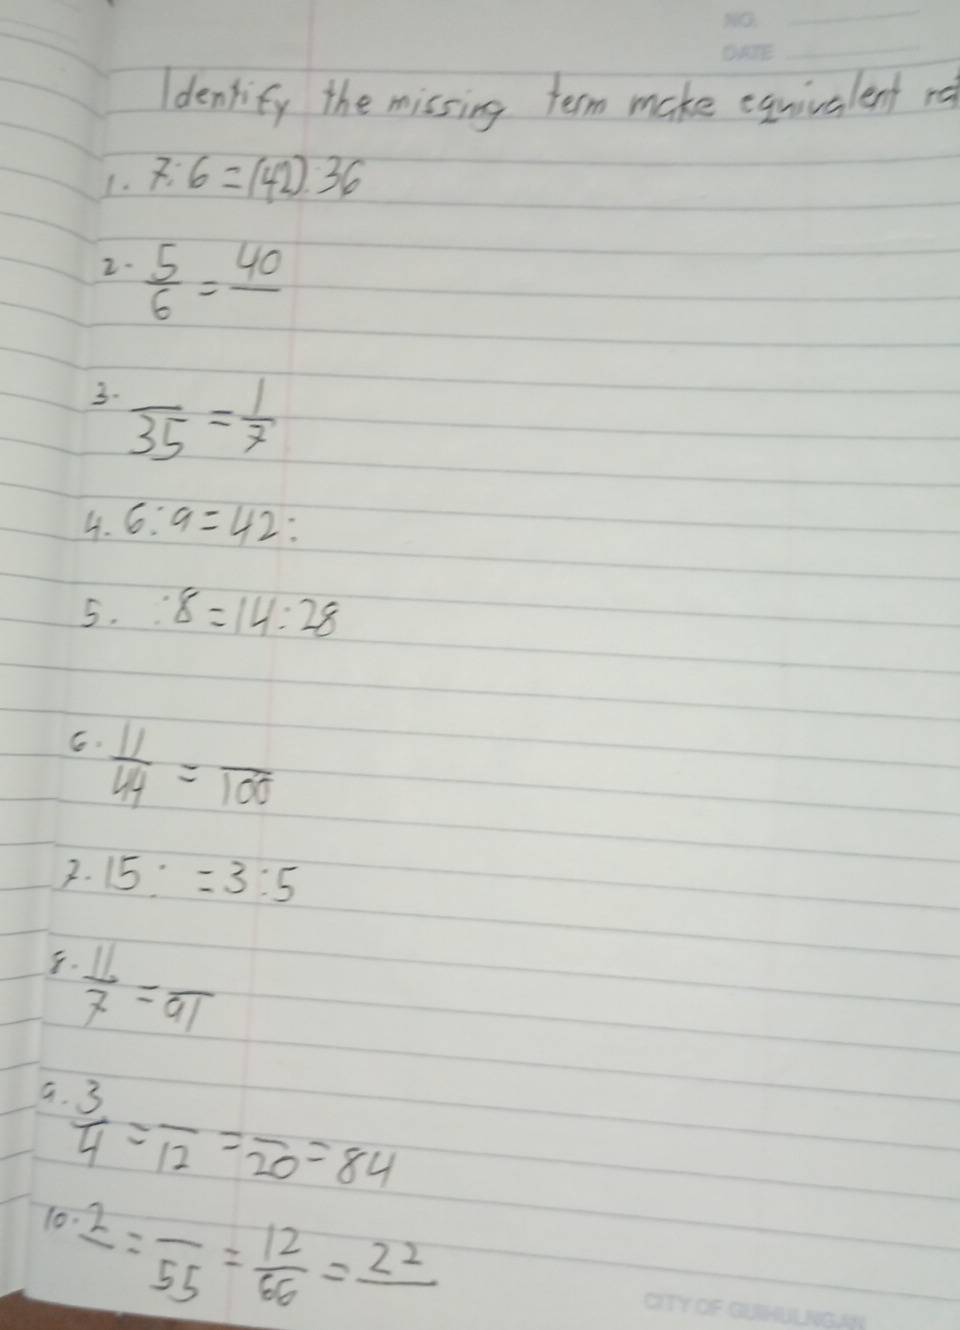 NO.
DATE
Identify the missing term make equivalent
1. 7:6=(42):36
2. 5/6 = 40/
3. /35 = 1/7
4. 6:9=42:
5. :8=14:28
6. 11/44 = /100
7. 15: =3:5
8. 11/7 = /91
9. 3/4 = /12 = /20 = 84
10. 2/ = /55 = 12/66 = 22/
CITY OF GUIHULNGAN